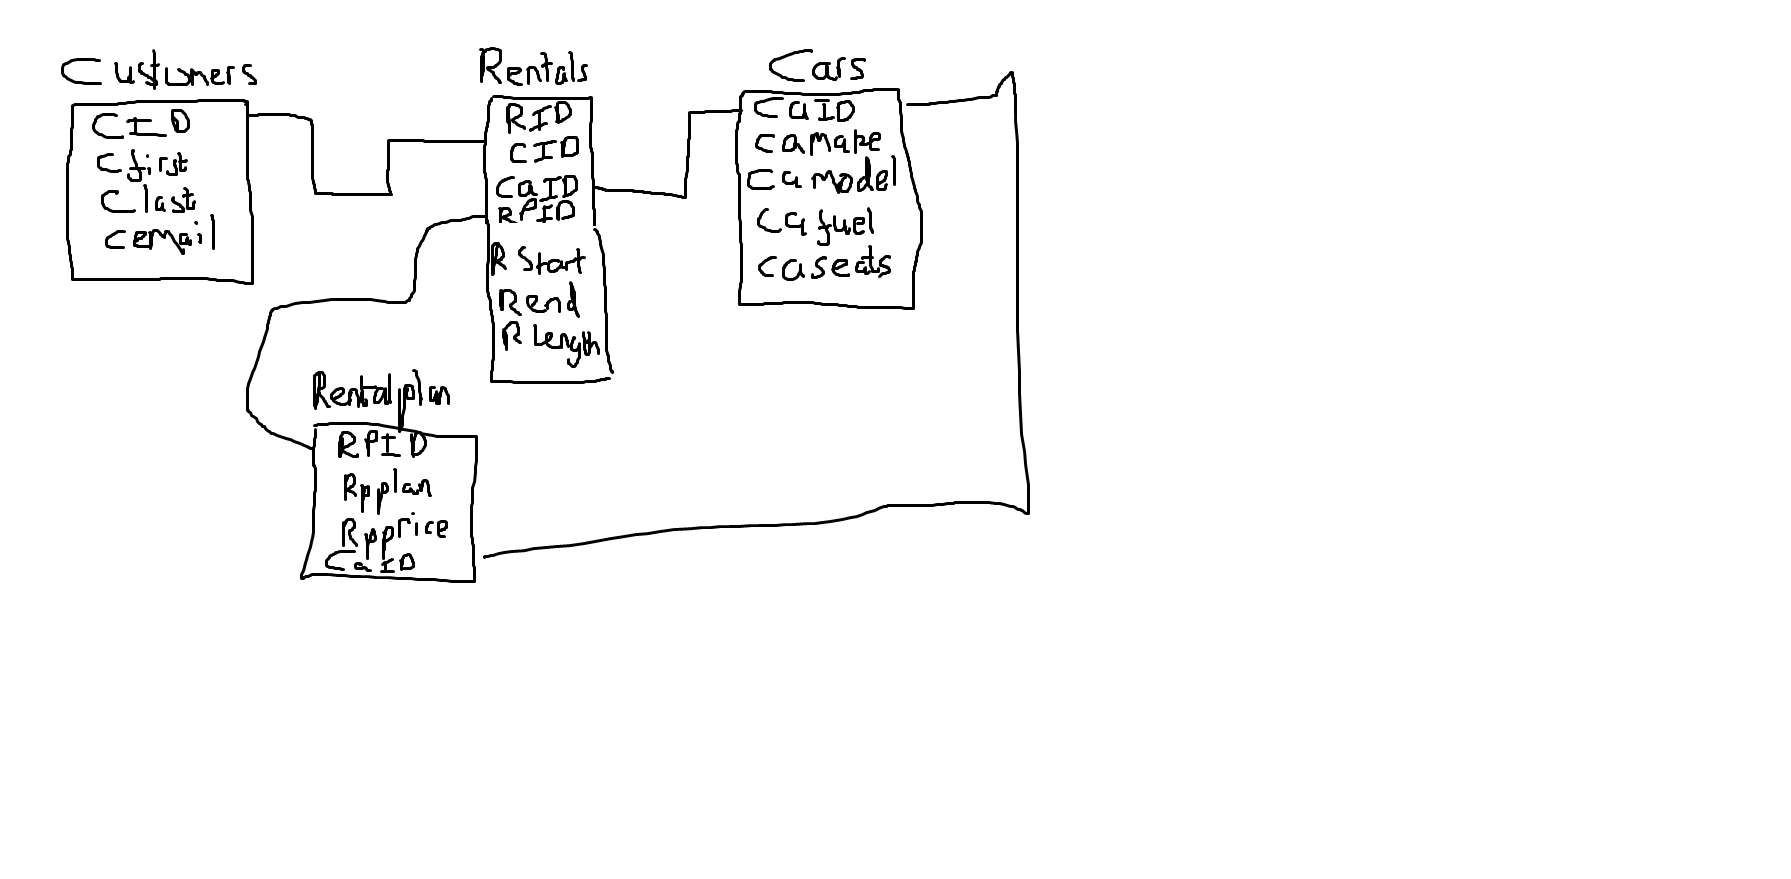 Customers
CID
Cfirst
Clast
Cemail
Rentals
RID
CID
CaID
RPID
RStart
Rend
RLength
Cars
CaID
Camake
Camodel
Cafuel
Caseats
Rentalplan
RPID
Rpplan
Rpprice
CaID